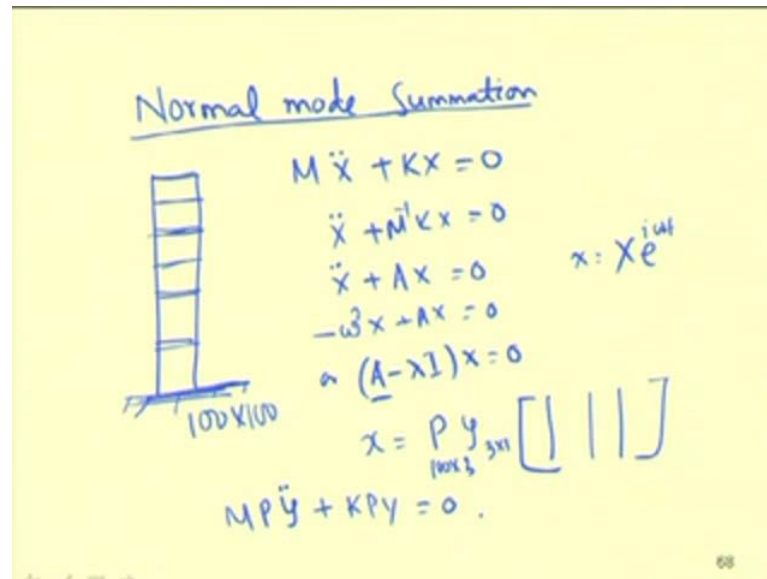 Normal mode Summation
Mẍ + Kx = 0
ẍ + M⁻¹Kx = 0
ẍ + Ax = 0
x = Xe^{iωt}
-ω²x + Ax = 0
(A-λI)x = 0
100X100
x = P_{100x3} y_{3x1} [| | |]
MPÿ + KPy = 0.
68